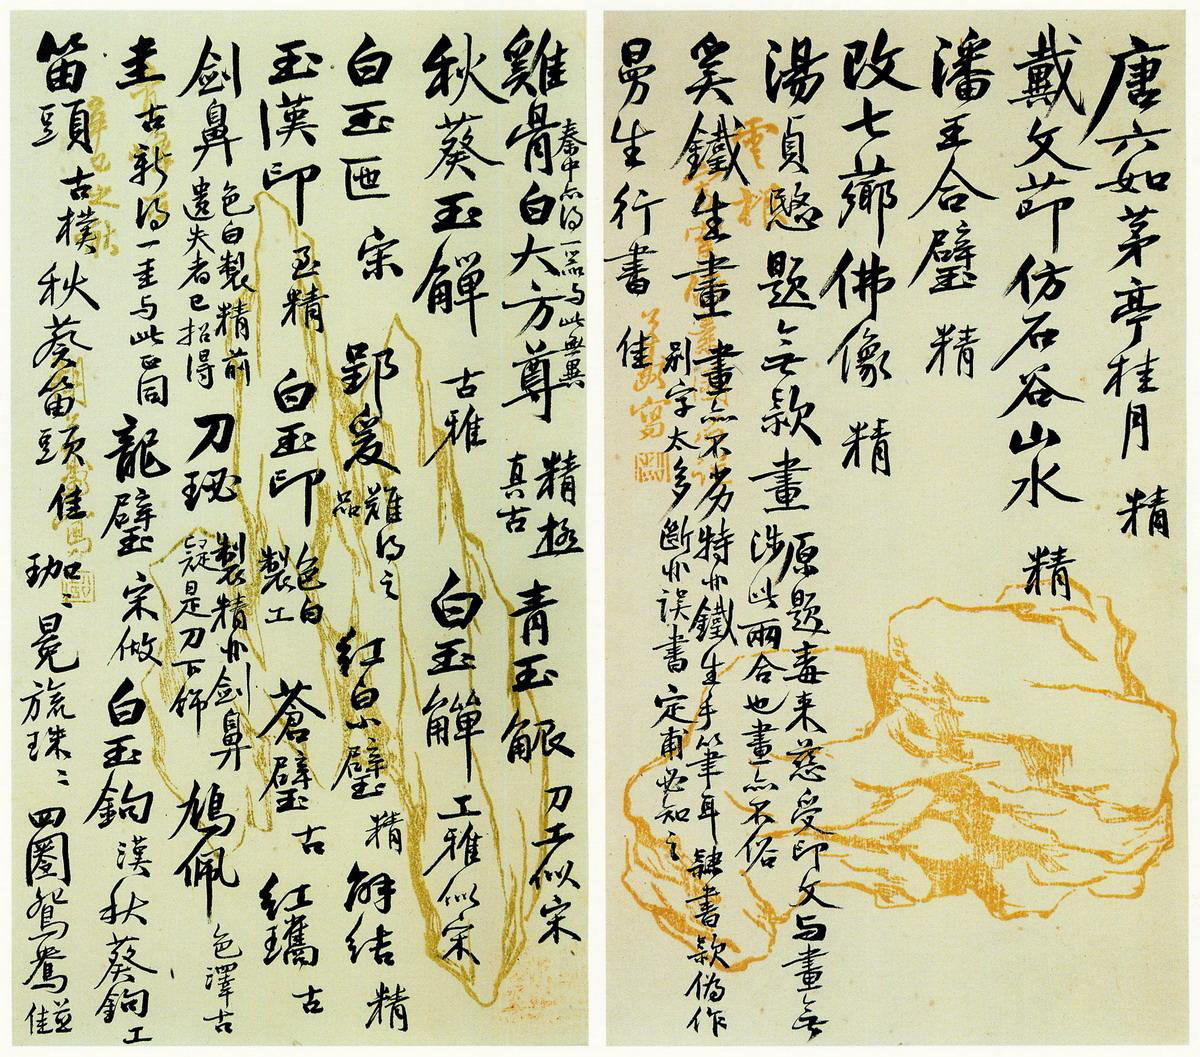 唐六如茅亭桂月 精
戴文莭仿石谷山水 精
潘王合璧 精
改七薌佛像 精
湯貞愍題無款畫 原題毒来慈受印文与畫無
涉此兩合也畫亦不俗
奚鐵生畫 畫亦不劣特非鐵生手筆耳隸書款偽作
别字太多斷非誤書 定甫必知之
曼生行書 佳
雞骨白大方尊 秦中亦得一器与此無異 精極
真古 青玉觥 刀工似宋
秋葵玉觶 古雅 白玉觶 工雅似宋
白玉匜 宋 郢爰 難得之
品 紅皀璧 精 解结 精
玉漢印 至精 白玉印 色白
製工 蒼璧 古 红瓗 古
劍鼻 色白製精前
遺失者已招得 刀珌 製精非劍鼻
疑是刀下飾 鳩佩 色澤古
圭 古 新得一圭与此正同 龍璧 宋做 白玉鉤 漢 秋葵鉤 工
笛頭 古樸 秋葵笛頭 佳 珈珈 冕旒珠珠 四圈鴛鴦 並佳